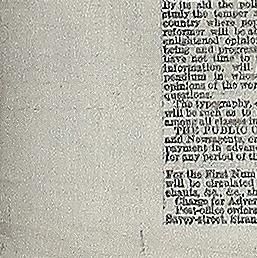 By its aid the poli
study the temper a
country where pop
reformer will be at
enlightened opinio
being and progres
have not time to
information, will
pendium in whos
opinions of the wor
questions.
The typography,
will be such as to
among all classes in
THE PUBLIC O
and Newsagents, or
payment in advanc
for any period of th
For the First Num
will be circulated
chants, &c., &c., th
Charge for Adver
Post-office orders
Savoy-street, Stran